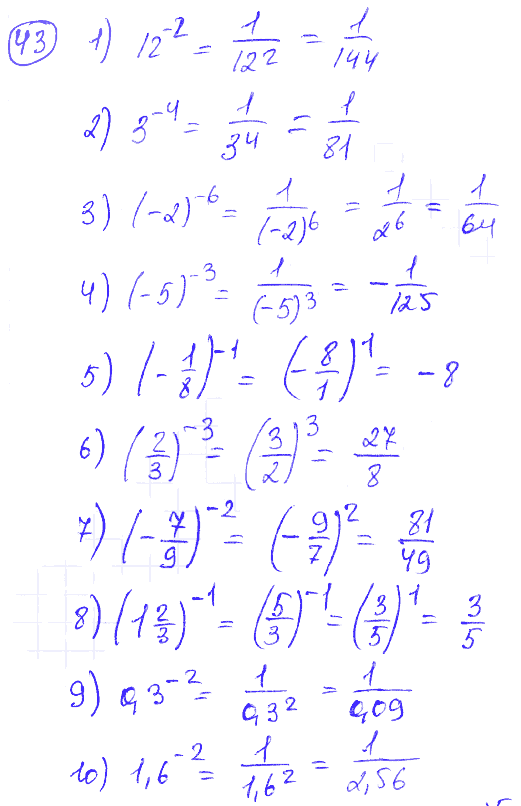 43 1) 12^-2 = 1/12^2 = 1/144
2) 3^-4 = 1/3^4 = 1/81
3) (-2)^-6 = 1/(-2)^6 = 1/2^6 = 1/64
4) (-5)^-3 = 1/(-5)^3 = -1/125
5) (-1/8)^-1 = (-8/1)^1 = -8
6) (2/3)^-3 = (3/2)^3 = 27/8
7) (-7/9)^-2 = (-9/7)^2 = 81/49
8) (1 2/3)^-1 = (5/3)^-1 = (3/5)^1 = 3/5
9) 0,3^-2 = 1/0,3^2 = 1/0,09
10) 1,6^-2 = 1/1,6^2 = 1/2,56